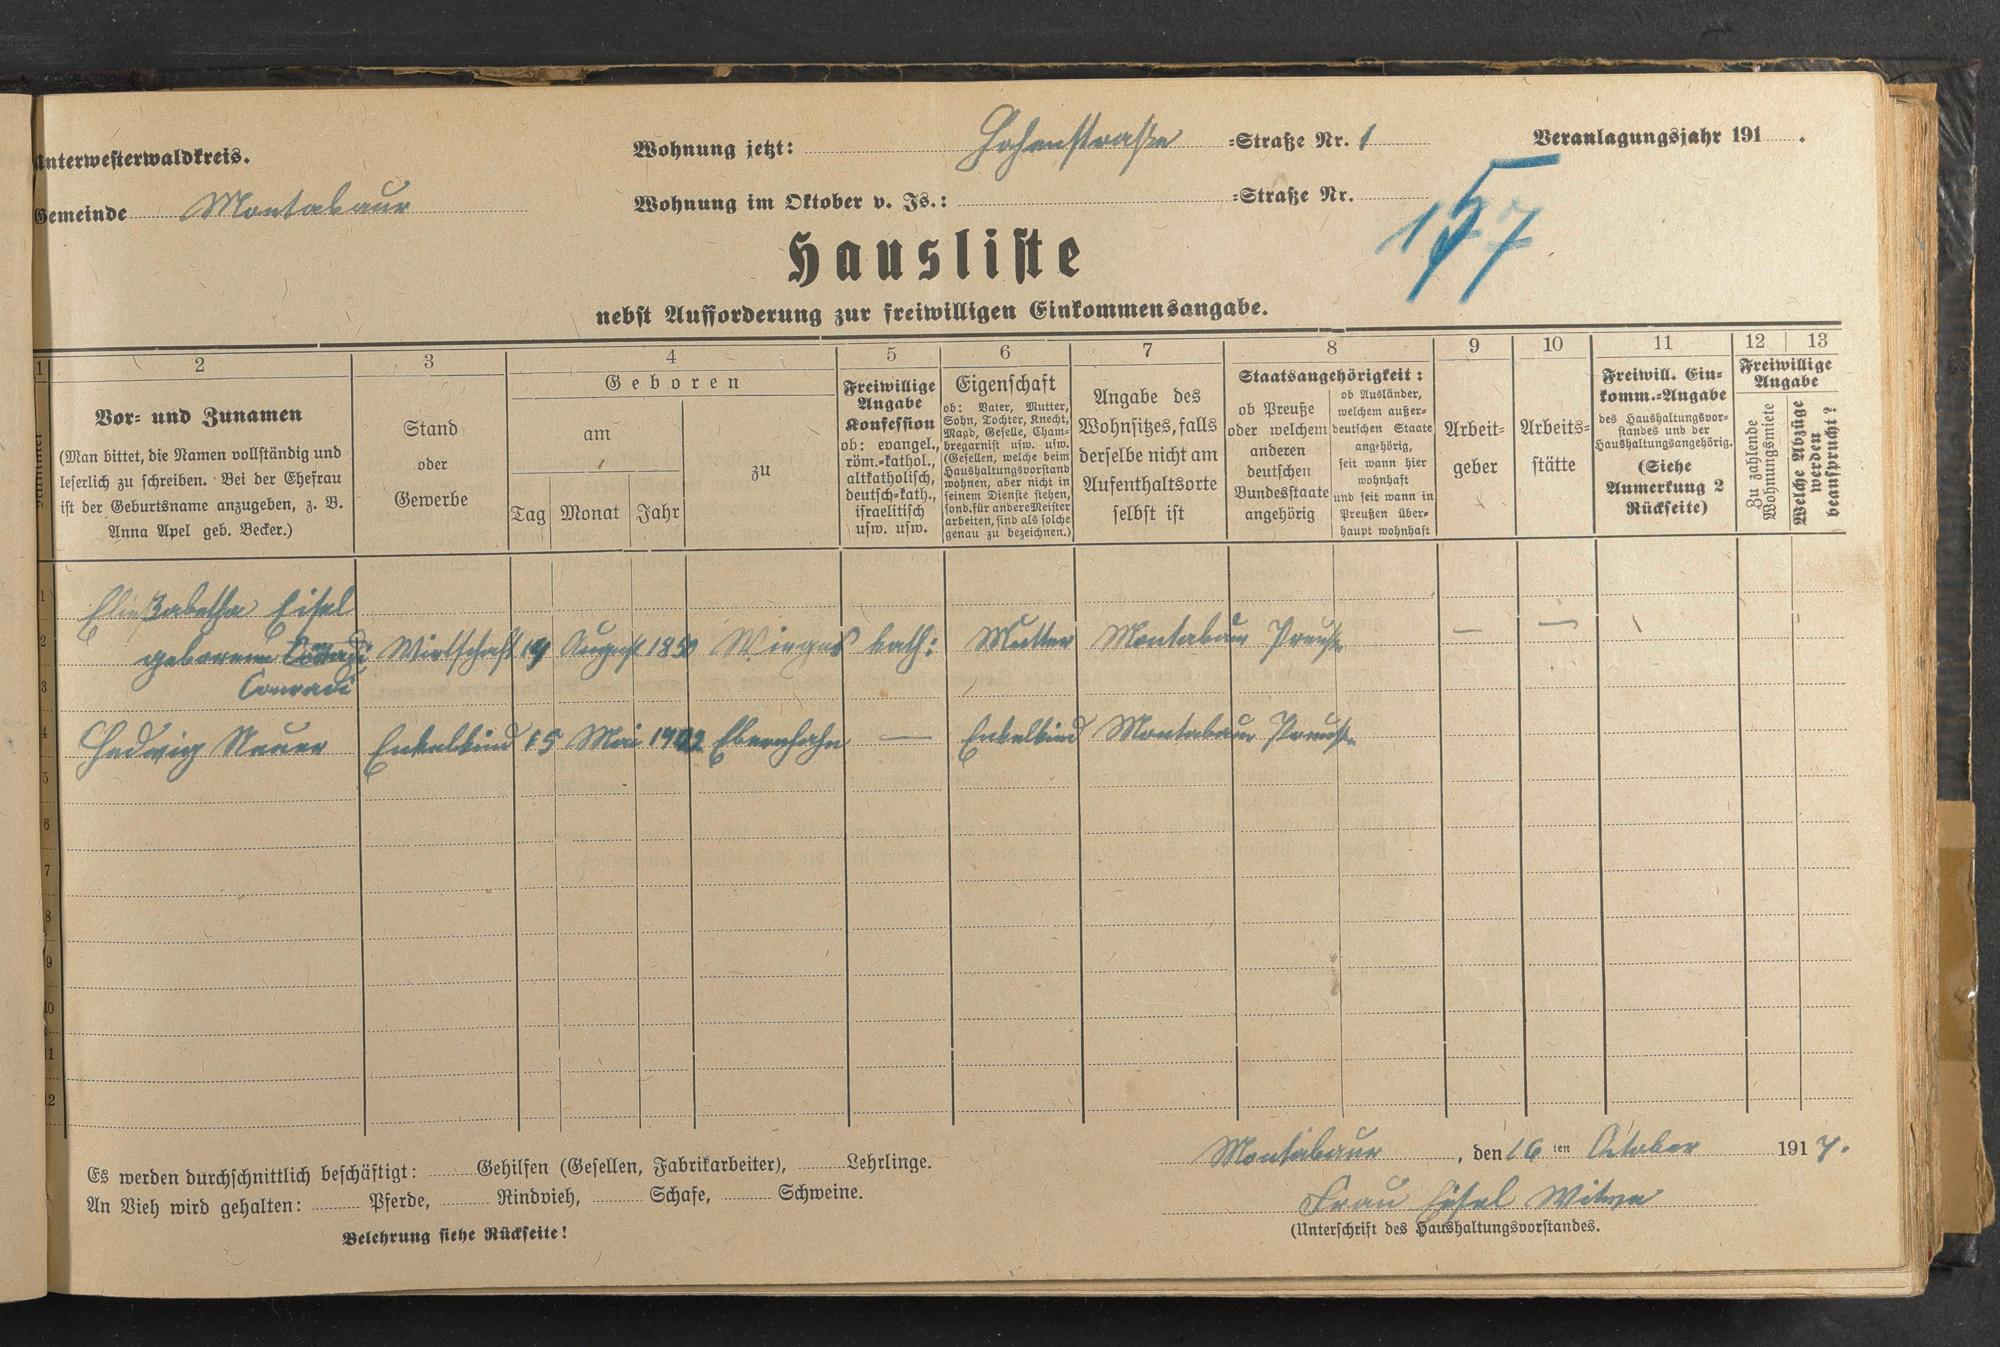 Unterwesterwaldkreis.
Wohnung jetzt: Hohenstraße =Straße Nr. 1
Veranlagungsjahr 191 .
Gemeinde Montabaur
Wohnung im Oktober v. Js.: =Straße Nr.
Hausliste
nebst Aufforderung zur freiwilligen Einkommensangabe.
1 2 3 4 5 6 7 8 9 10 11 12 13
Nummer
Vor- und Zunamen
(Man bittet, die Namen vollständig und
leserlich zu schreiben. Bei der Ehefrau
ist der Geburtsname anzugeben, z. B.
Anna Apel geb. Becker.)
Stand
oder
Gewerbe
Geboren
am
Tag Monat Jahr
zu
Freiwillige
Angabe
Konfession
ob: evangel.,
röm.-kathol.,
altkatholisch,
deutsch-kath.,
israelitisch
usw. usw.
Eigenschaft
ob: Vater, Mutter,
Sohn, Tochter, Knecht,
Magd, Geselle, Cham-
bregarnist usw. usw.
(Gesellen, welche beim
Haushaltungsvorstand
wohnen, aber nicht in
seinem Dienste stehen,
sond. für andere Meister
arbeiten, sind als solche
genau zu bezeichnen.)
Angabe des
Wohnsitzes, falls
derselbe nicht am
Aufenthaltsorte
selbst ist
Staatsangehörigkeit:
ob Preuße
oder welchem
anderen
deutschen
Bundesstaate
angehörig
ob Ausländer,
welchem außer-
deutschen Staate
angehörig,
seit wann hier
wohnhaft
und seit wann in
Preußen über-
haupt wohnhaft
Arbeit-
geber
Arbeits-
stätte
Freiwill. Ein-
komm.-Angabe
des Haushaltungsvor-
standes und der
Haushaltungsangehörig.
(Siehe
Anmerkung 2
Rückseite)
Freiwillige
Angabe
Zu zahlende
Wohnungsmiete
Welche Abzüge
werden
beansprucht?
1 Eließabetha Eisel
2 geborene Wirtschaft 19 August 1850 Wirges kath: Mutter Montabaur Preuße — —
3 Conradi
4 Hedwig Neuer Enkelkind 15 Mai 1902 Ebernhahn — Enkelkind Montabaur Preuße
5
6
7
8
9
10
11
12
Es werden durchschnittlich beschäftigt: Gehilfen (Gesellen, Fabrikarbeiter), Lehrlinge.
An Vieh wird gehalten: Pferde, Rindvieh, Schafe, Schweine.
Belehrung siehe Rückseite!
Montabaur, den 16 ten October 1917.
Frau Eisel Witwe
(Unterschrift des Haushaltungsvorstandes.